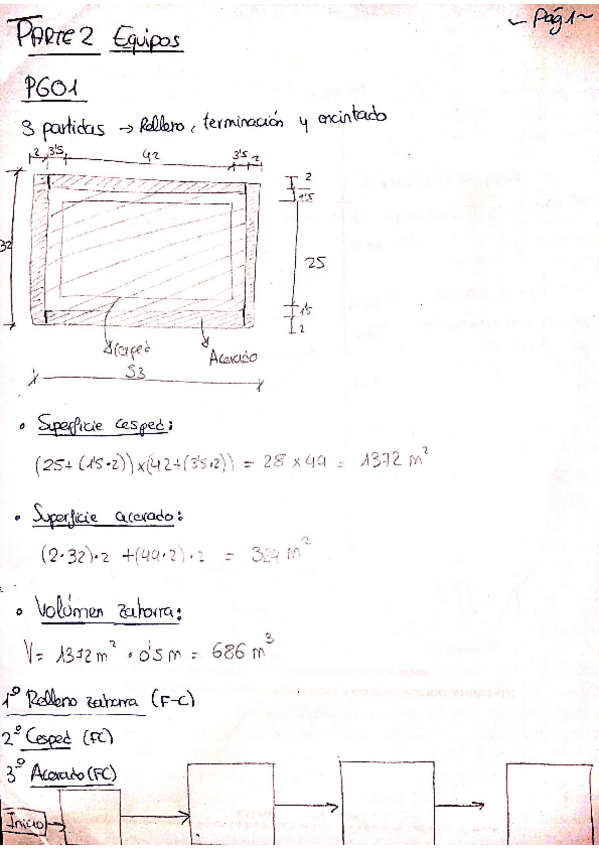 ~ Pág 1 ~
PARTE 2 Equipos
PG01
3 partidas → Relleno, terminación y encintado
2 3'5 42 3'5 2
2
1'5
32
25
1'5
2
Cesped
Acerado
53
• Superficie cesped:
(25+(1'5·2))x(42+(3'5·2)) = 28 x 49 = 1372 m²
• Superficie acerado:
(2·32)·2 +(49·2)·2 = 324 m²
• Volúmen zahorra:
V= 1372 m² · 0'5 m = 686 m³
1º Relleno zahorra (F-C)
2º Cesped (FC)
3º Acerado (FC)
Inicio